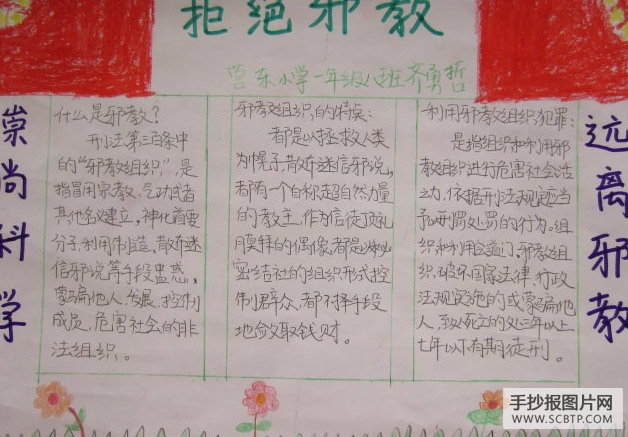 拒绝邪教
营东小学一年级八班齐勇哲
崇尚科学
什么是邪教?
刑法第三百条中
的"邪教组织",是
指冒用宗教、气功或者
其他名义建立,神化首要
分子,利用制造、散布迷
信邪说等手段蛊惑、
蒙骗他人,发展、控制
成员,危害社会的非
法组织。
邪教组织的特点:
都是以拯救人类
为幌子,散布迷信邪说,
都有一个自称超自然力量
的教主,作为信徒顶礼
膜拜的偶像,都是以秘
密结社的组织形式控
制群众,都不择手段
地敛取钱财。
利用邪教组织犯罪:
是指组织和利用邪
教组织进行危害社会活
动,依据刑法规定应当
予以刑罚处罚的行为。组
织和利用会道门、邪教组
织,破坏国家法律、行政
法规实施的或蒙骗他
人,致人死亡的处三年以上
七年以下有期徒刑。
远离邪教
手抄报图片网
WWW.SCBTP.COM